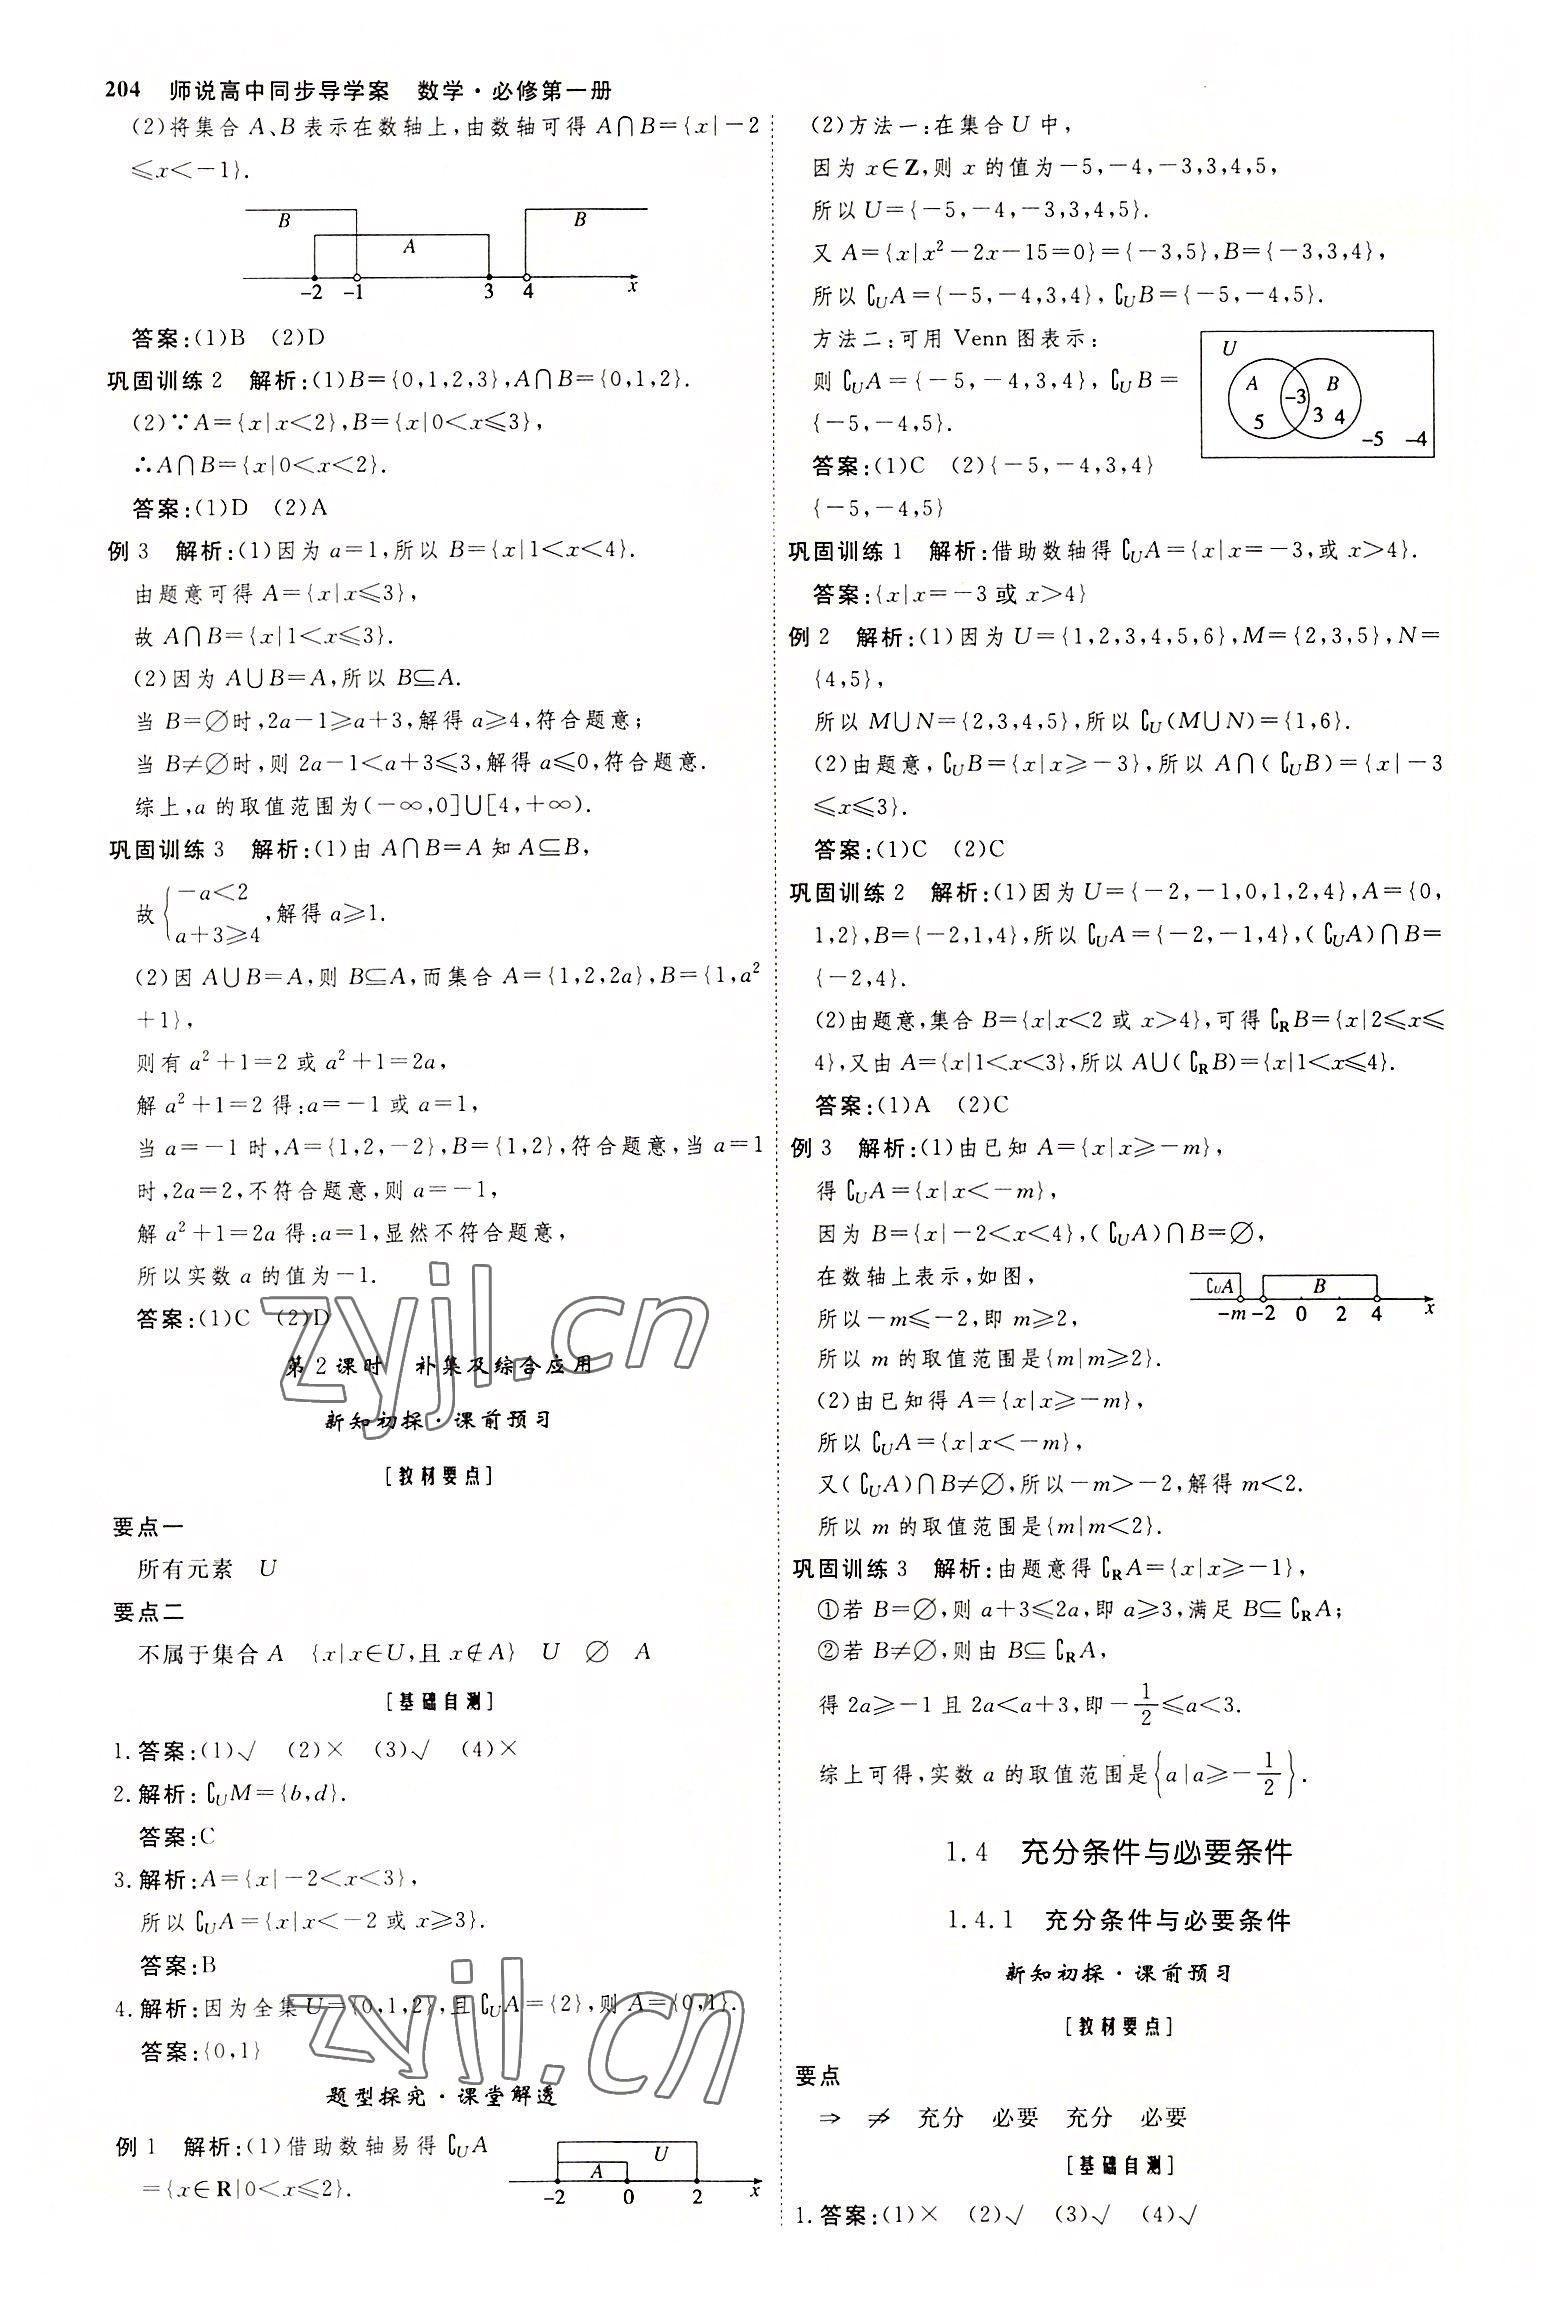 204 师说高中同步导学案 数学·必修第一册
(2)将集合 A、B 表示在数轴上,由数轴可得 A∩B={x|-2
≤x<-1}.
B A B
-2 -1 3 4 x
答案:(1)B (2)D
巩固训练2 解析:(1)B={0,1,2,3},A∩B={0,1,2}.
(2)∵A={x|x<2},B={x|0<x≤3},
∴A∩B={x|0<x<2}.
答案:(1)D (2)A
例3 解析:(1)因为 a=1,所以 B={x|1<x<4}.
由题意可得 A={x|x≤3},
故 A∩B={x|1<x≤3}.
(2)因为 A∪B=A,所以 B⊆A.
当 B=∅时,2a-1≥a+3,解得 a≥4,符合题意;
当 B≠∅时,则 2a-1<a+3≤3,解得 a≤0,符合题意.
综上,a 的取值范围为(-∞,0]∪[4,+∞).
巩固训练3 解析:(1)由 A∩B=A 知 A⊆B,
故{-a<2
a+3≥4,解得 a≥1.
(2)因 A∪B=A,则 B⊆A,而集合 A={1,2,2a},B={1,a²
+1},
则有 a²+1=2 或 a²+1=2a,
解 a²+1=2 得:a=-1 或 a=1,
当 a=-1 时,A={1,2,-2},B={1,2},符合题意,当 a=1
时,2a=2,不符合题意,则 a=-1,
解 a²+1=2a 得:a=1,显然不符合题意,
所以实数 a 的值为-1.
答案:(1)C (2)D
zyjl.cn
第2课时 补集及综合应用
新知初探·课前预习
[教材要点]
要点一
所有元素 U
要点二
不属于集合 A {x|x∈U,且 x∉A} U ∅ A
[基础自测]
1.答案:(1)√ (2)× (3)√ (4)×
2.解析:∁UM={b,d}.
答案:C
3.解析:A={x|-2<x<3},
所以 ∁UA={x|x<-2 或 x≥3}.
答案:B
4.解析:因为全集 U={0,1,2},且 ∁UA={2},则 A={0,1}.
答案:{0,1}
zyjl.cn
题型探究·课堂解透
例1 解析:(1)借助数轴易得 ∁UA
={x∈R|0<x≤2}.
U
A
-2 0 2 x
(2)方法一:在集合 U 中,
因为 x∈Z,则 x 的值为-5,-4,-3,3,4,5,
所以 U={-5,-4,-3,3,4,5}.
又 A={x|x²-2x-15=0}={-3,5},B={-3,3,4},
所以 ∁UA={-5,-4,3,4},∁UB={-5,-4,5}.
方法二:可用 Venn 图表示:
则 ∁UA={-5,-4,3,4},∁UB=
{-5,-4,5}.
U
A B
-3
5 3 4
-5 -4
答案:(1)C (2){-5,-4,3,4}
{-5,-4,5}
巩固训练1 解析:借助数轴得 ∁UA={x|x=-3,或 x>4}.
答案:{x|x=-3 或 x>4}
例2 解析:(1)因为 U={1,2,3,4,5,6},M={2,3,5},N=
{4,5},
所以 M∪N={2,3,4,5},所以 ∁U(M∪N)={1,6}.
(2)由题意,∁UB={x|x≥-3},所以 A∩(∁UB)={x|-3
≤x≤3}.
答案:(1)C (2)C
巩固训练2 解析:(1)因为 U={-2,-1,0,1,2,4},A={0,
1,2},B={-2,1,4},所以 ∁UA={-2,-1,4},(∁UA)∩B=
{-2,4}.
(2)由题意,集合 B={x|x<2 或 x>4},可得 ∁RB={x|2≤x≤
4},又由 A={x|1<x<3},所以 A∪(∁RB)={x|1<x≤4}.
答案:(1)A (2)C
例3 解析:(1)由已知 A={x|x≥-m},
得 ∁UA={x|x<-m},
因为 B={x|-2<x<4},(∁UA)∩B=∅,
在数轴上表示,如图,
∁UA B
-m -2 0 2 4 x
所以-m≤-2,即 m≥2,
所以 m 的取值范围是{m|m≥2}.
(2)由已知得 A={x|x≥-m},
所以 ∁UA={x|x<-m},
又(∁UA)∩B≠∅,所以-m>-2,解得 m<2.
所以 m 的取值范围是{m|m<2}.
巩固训练3 解析:由题意得 ∁RA={x|x≥-1},
①若 B=∅,则 a+3≤2a,即 a≥3,满足 B⊆∁RA;
②若 B≠∅,则由 B⊆∁RA,
得 2a≥-1 且 2a<a+3,即-1/2≤a<3.
综上可得,实数 a 的取值范围是{a|a≥-1/2}.
1.4 充分条件与必要条件
1.4.1 充分条件与必要条件
新知初探·课前预习
[教材要点]
要点
⇒ ⇏ 充分 必要 充分 必要
[基础自测]
1.答案:(1)× (2)√ (3)√ (4)√